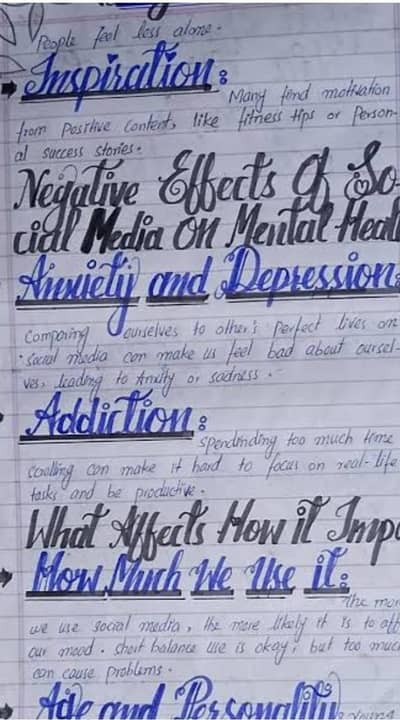 People feel less alone.
Inspiration:
Many find motivation
from positive content, like fitness tips or person-
al success stories.
Negative Effects Of So-
cial Media On Mental Heal
Anxiety and Depression:
Comparing ourselves to other's perfect lives on
social media can make us feel bad about oursel-
ves, leading to Anxity or sadness.
Addiction:
spendinding too much time
scrolling can make it hard to focus on real-life
tasks and be productive.
What Affects How it Impa
How Much We Use it:
The mor
we use social media, the more likely it is to aff
our mood. short balance use is okay, but too muc
can cause problems.
Age and Personality
Young